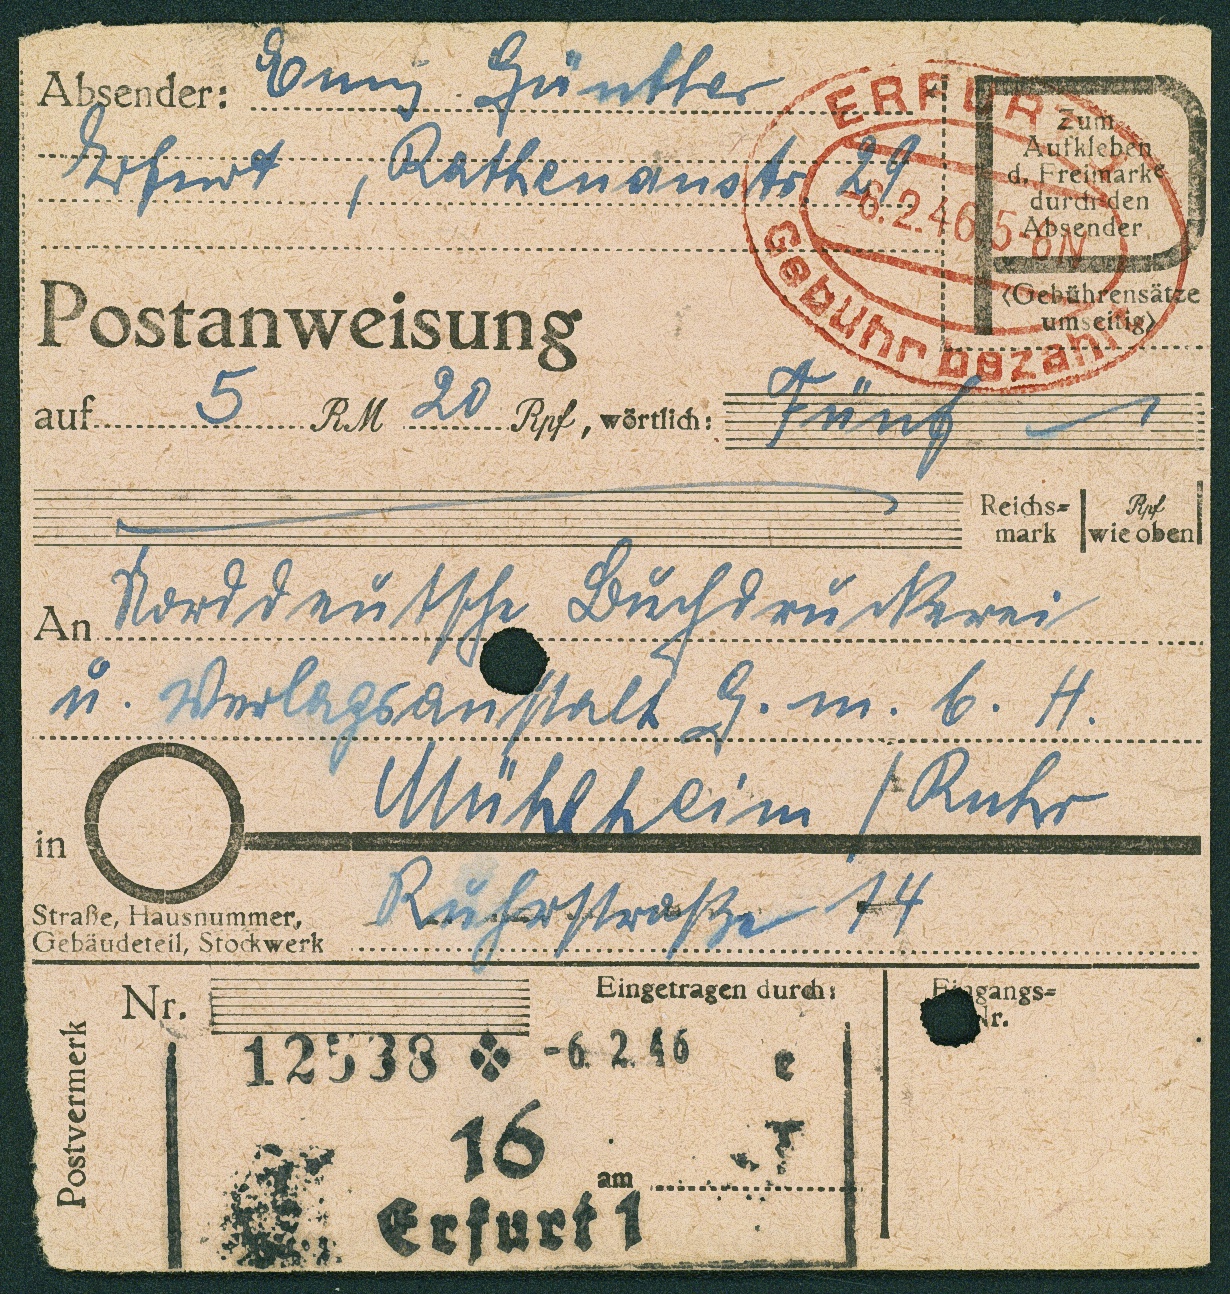 Absender: Emmy Günther
Erfurt, Rathenaustr. 29
ERFURT
-6.2.46 5-6N
Gebühr bezahlt
Zum
Aufkleben
d. Freimarke
durch den
Absender
(Gebührensätze
umseitig)
Postanweisung
auf 5 RM 20 Rpf, wörtlich: Fünf
Reichs=
mark
Rpf
wie oben
An Norddeutsche Buchdruckerei
u. Verlagsanstalt G. m. b. H.
in Mühlheim / Ruhr
Straße, Hausnummer,
Gebäudeteil, Stockwerk
Ruhrstraße 14
Postvermerk
Nr.
Eingetragen durch:
Eingangs=
Nr.
12538 -6.2.46 e
16
am
Erfurt 1